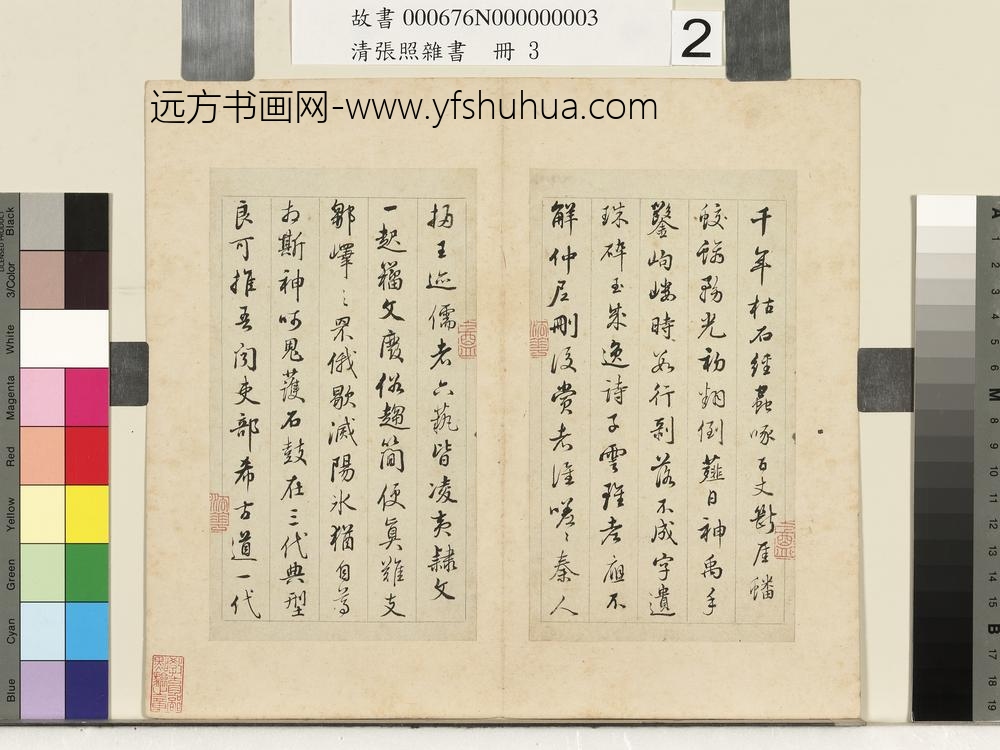 故書 000676N000000003
清張照雜書 冊 3
2
远方书画网-www.yfshuhua.com
千年枯石經蟲啄百丈斷厓蟠
蛟螭務光初翔倒薤日神禹手
鑿岣嶁時安行剥落不成字遺
珠碎玉成逸詩子雲雖老應不
解仲尼刪後賞者誰嗟〻秦人
掃王迹儒者六藝皆凌夷隸文
一起籀文廢俗趨簡便真難支
鄒嶧〻罘俄歇滅陽冰猶自蔿
相斯神呵鬼護石鼓在三代典型
良可推吾聞吏部希古道一代
Black
3/Color
White
Magenta
Red
Yellow
Green
Cyan
Blue
A
1
2
3
4
5
6
M
8
9
10
11
12
13
14
15
B
17
18
19